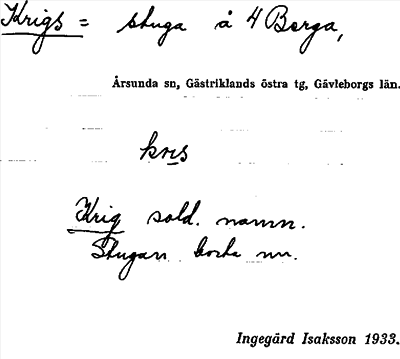 Krigs = stuga å 4 Berga,
Årsunda sn, Gästriklands östra tg, Gävleborgs län.
Krig sold. namn.
Stugan borta nu.
Ingegärd Isaksson 1933.